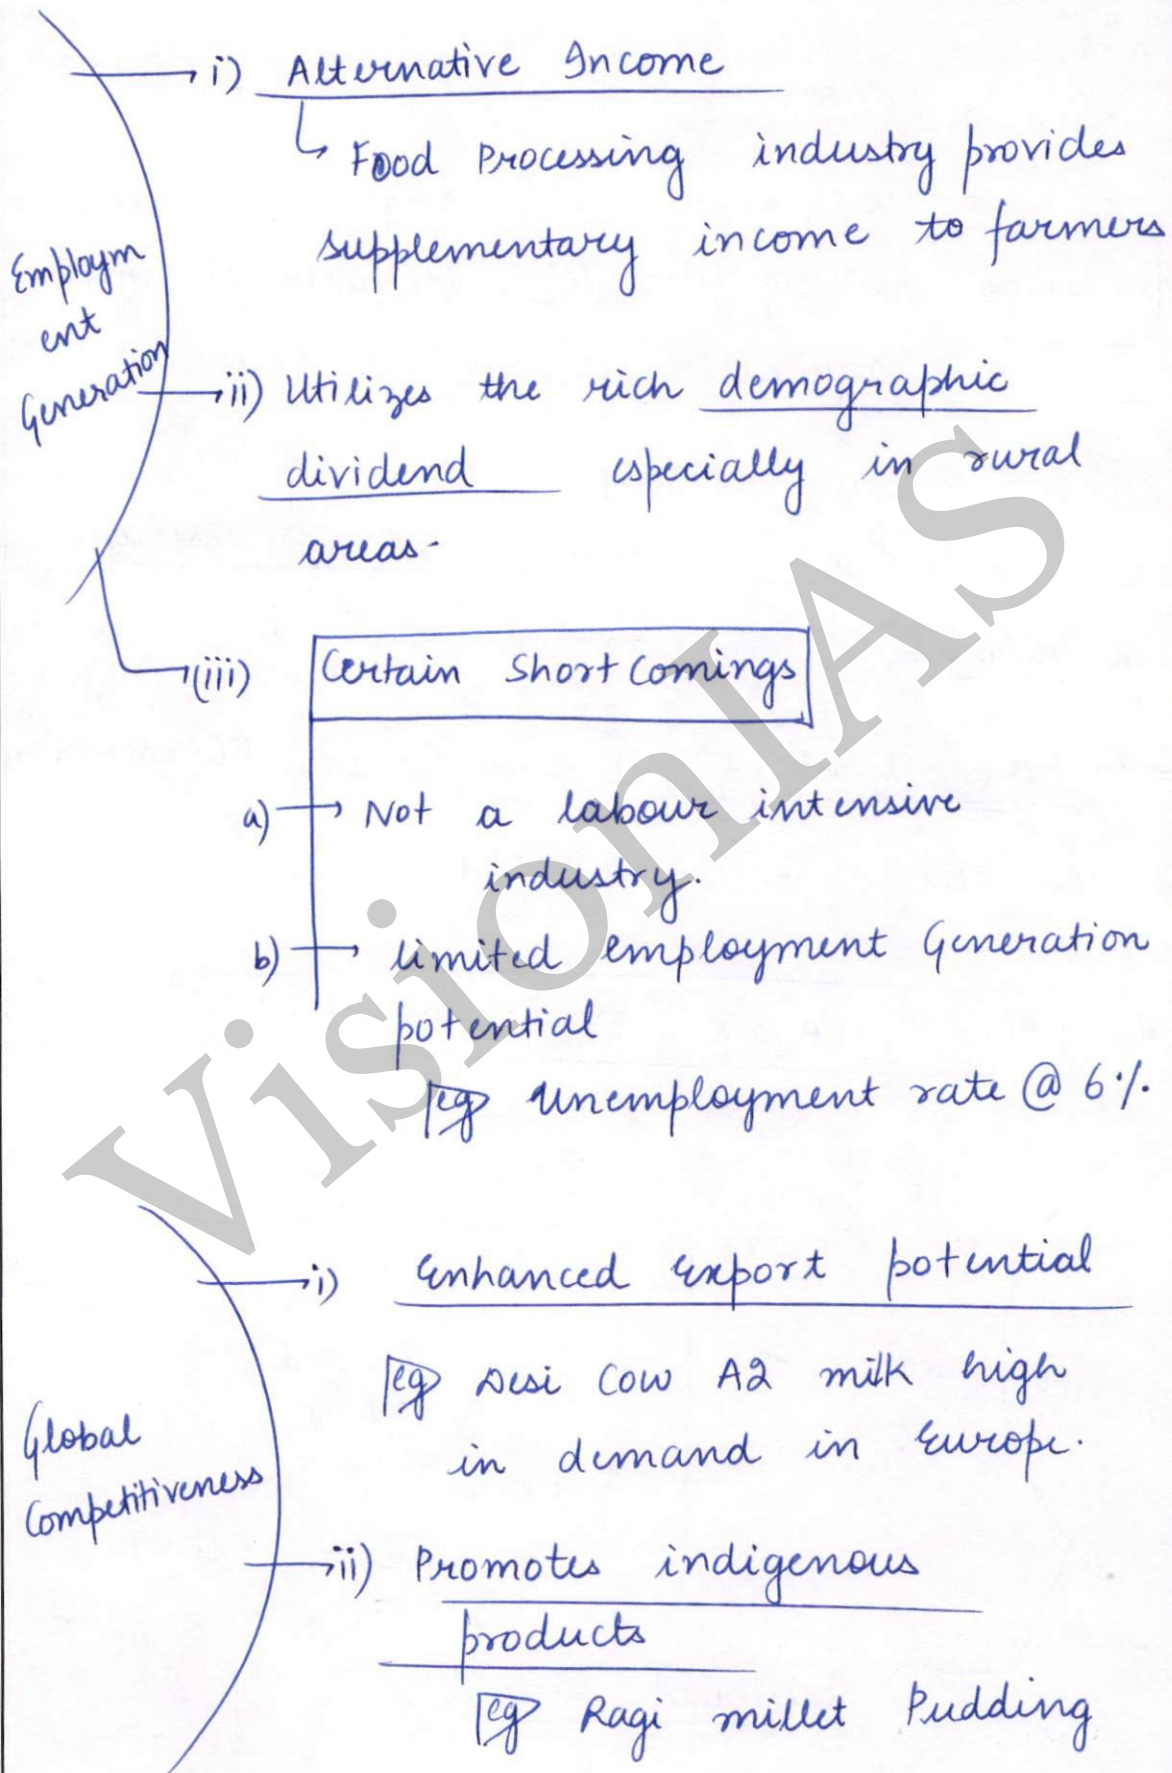 i) Alternative Income
Food Processing industry provides
supplementary income to farmers
Employm
ent
Generation
ii) Utilizes the rich demographic
dividend especially in rural
areas.
(iii) Certain Shortcomings
a) Not a labour intensive
industry.
b) limited employment Generation
potential
eg Unemployment rate @ 6%.
Global
Competitiveness
i) Enhanced Export potential
eg Desi Cow A2 milk high
in demand in Europe.
ii) Promotes indigenous
products
eg Ragi millet Pudding
VisionIAS